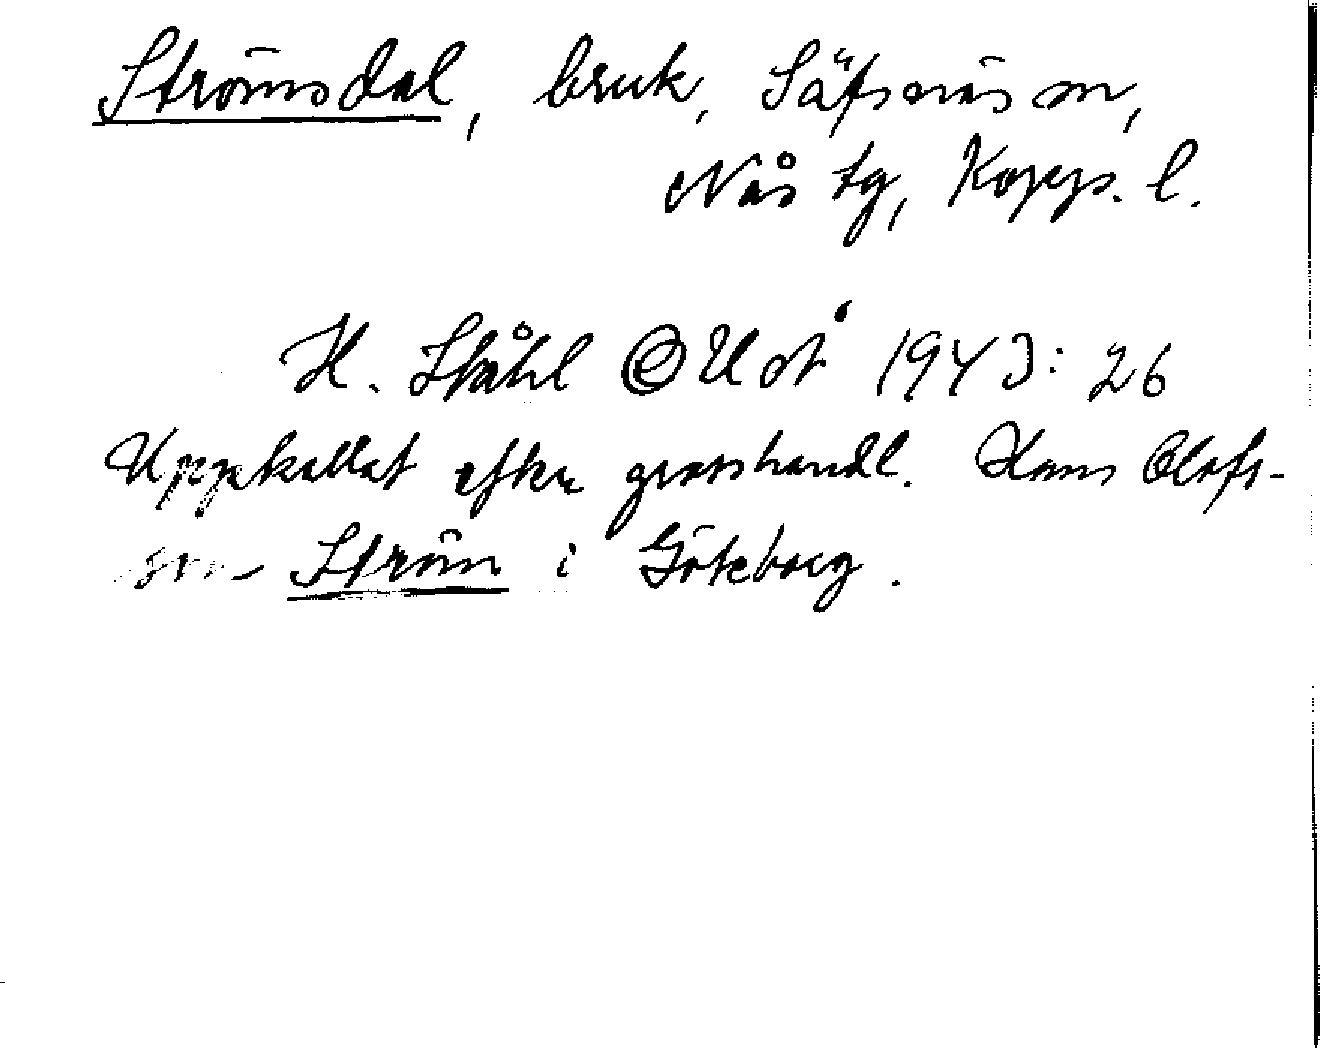 Strömsdal, bruk, Säfsnäs sn,
Nås tg, Kopps. l.
H. Ståhl @ UoÅ 1943: 26
Uppkallat efter grosshandl. Hans Olofs-
son Ström i Göteborg.